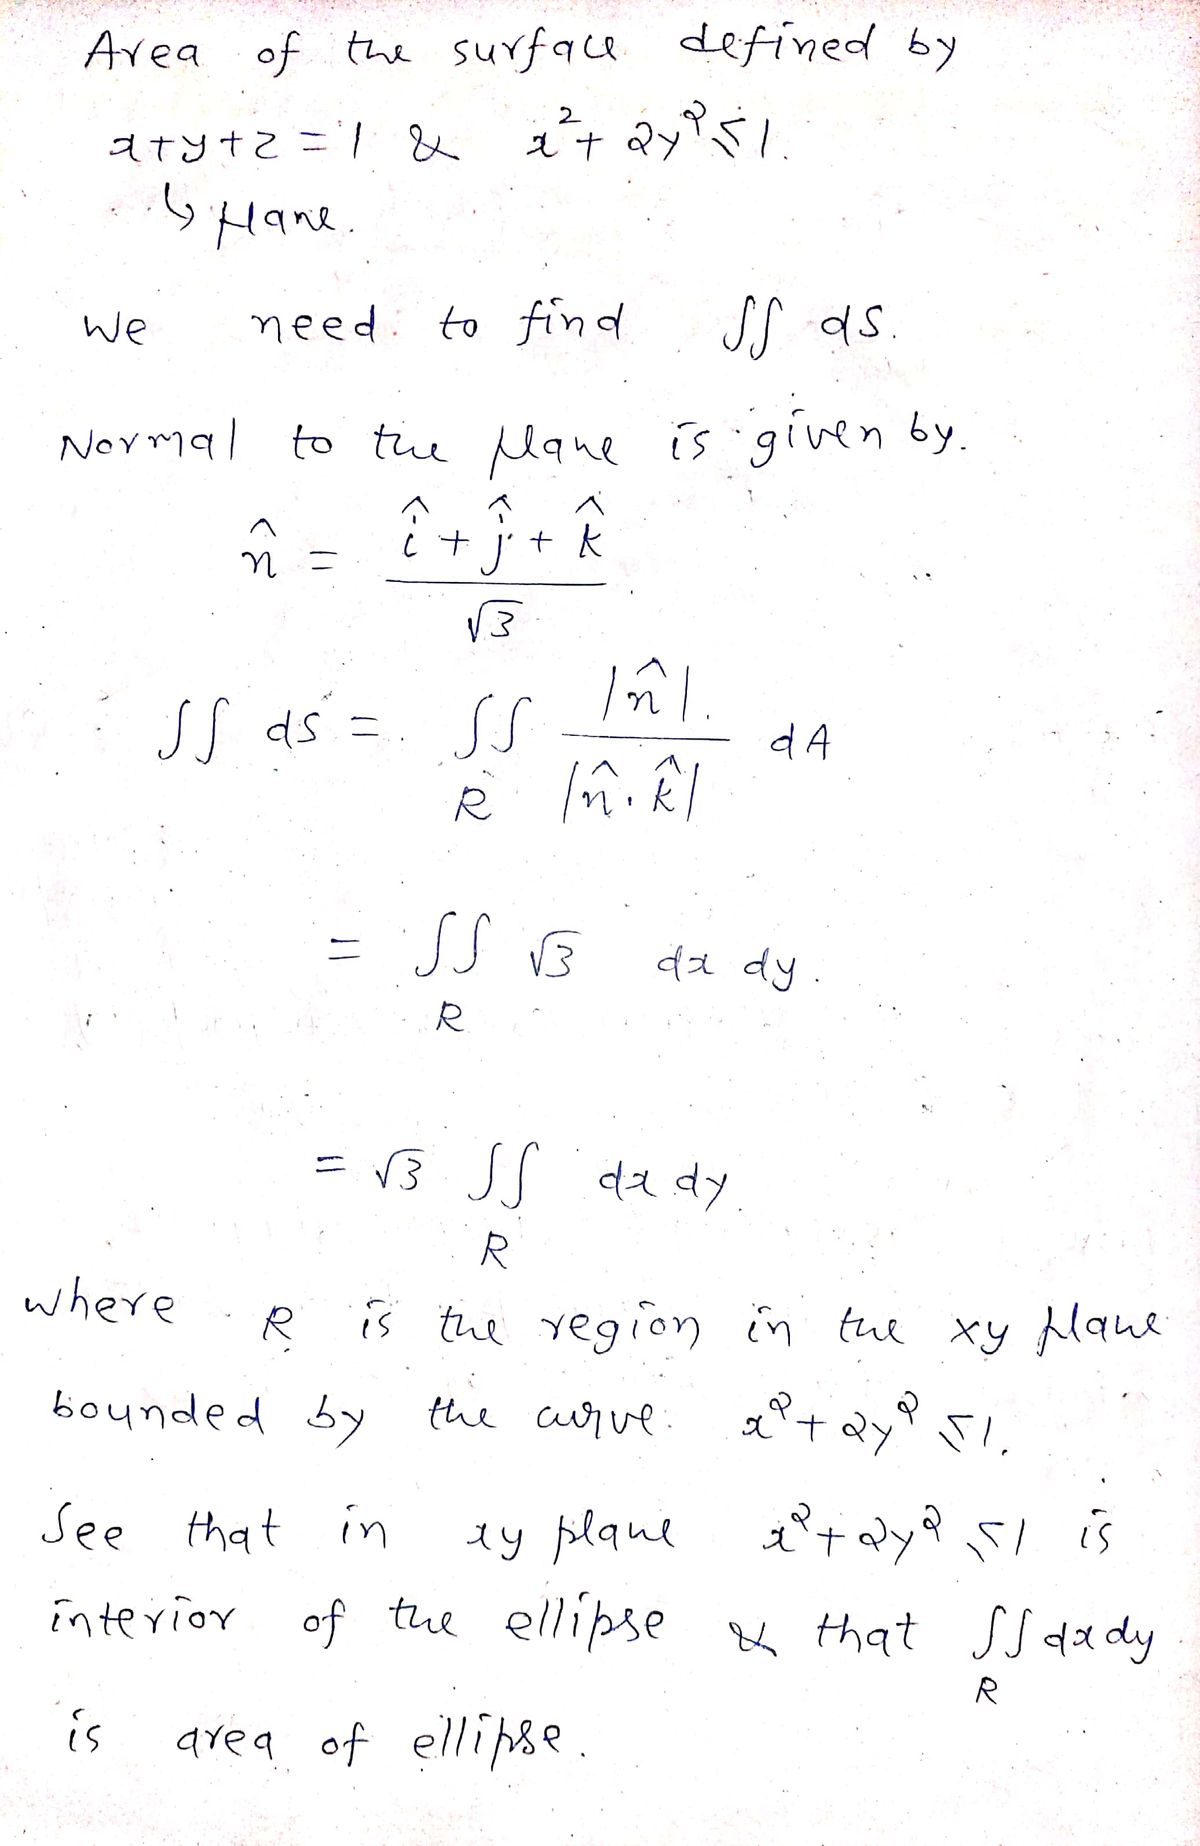 Area of the surface defined by
x+y+z = 1 & x² + 2y² ≤ 1.
↳ plane.
We need to find ∬ ds.
Normal to the plane is given by.
n̂ = (î + ĵ + k̂) / √3
∬ ds = ∬_R |n̂| / |n̂ · k̂| dA
= ∬_R √3 dx dy.
= √3 ∬_R dx dy.
where R is the region in the xy plane
bounded by the curve x² + 2y² ≤ 1.
See that in xy plane x² + 2y² ≤ 1 is
interior of the ellipse & that ∬_R dx dy
is area of ellipse.